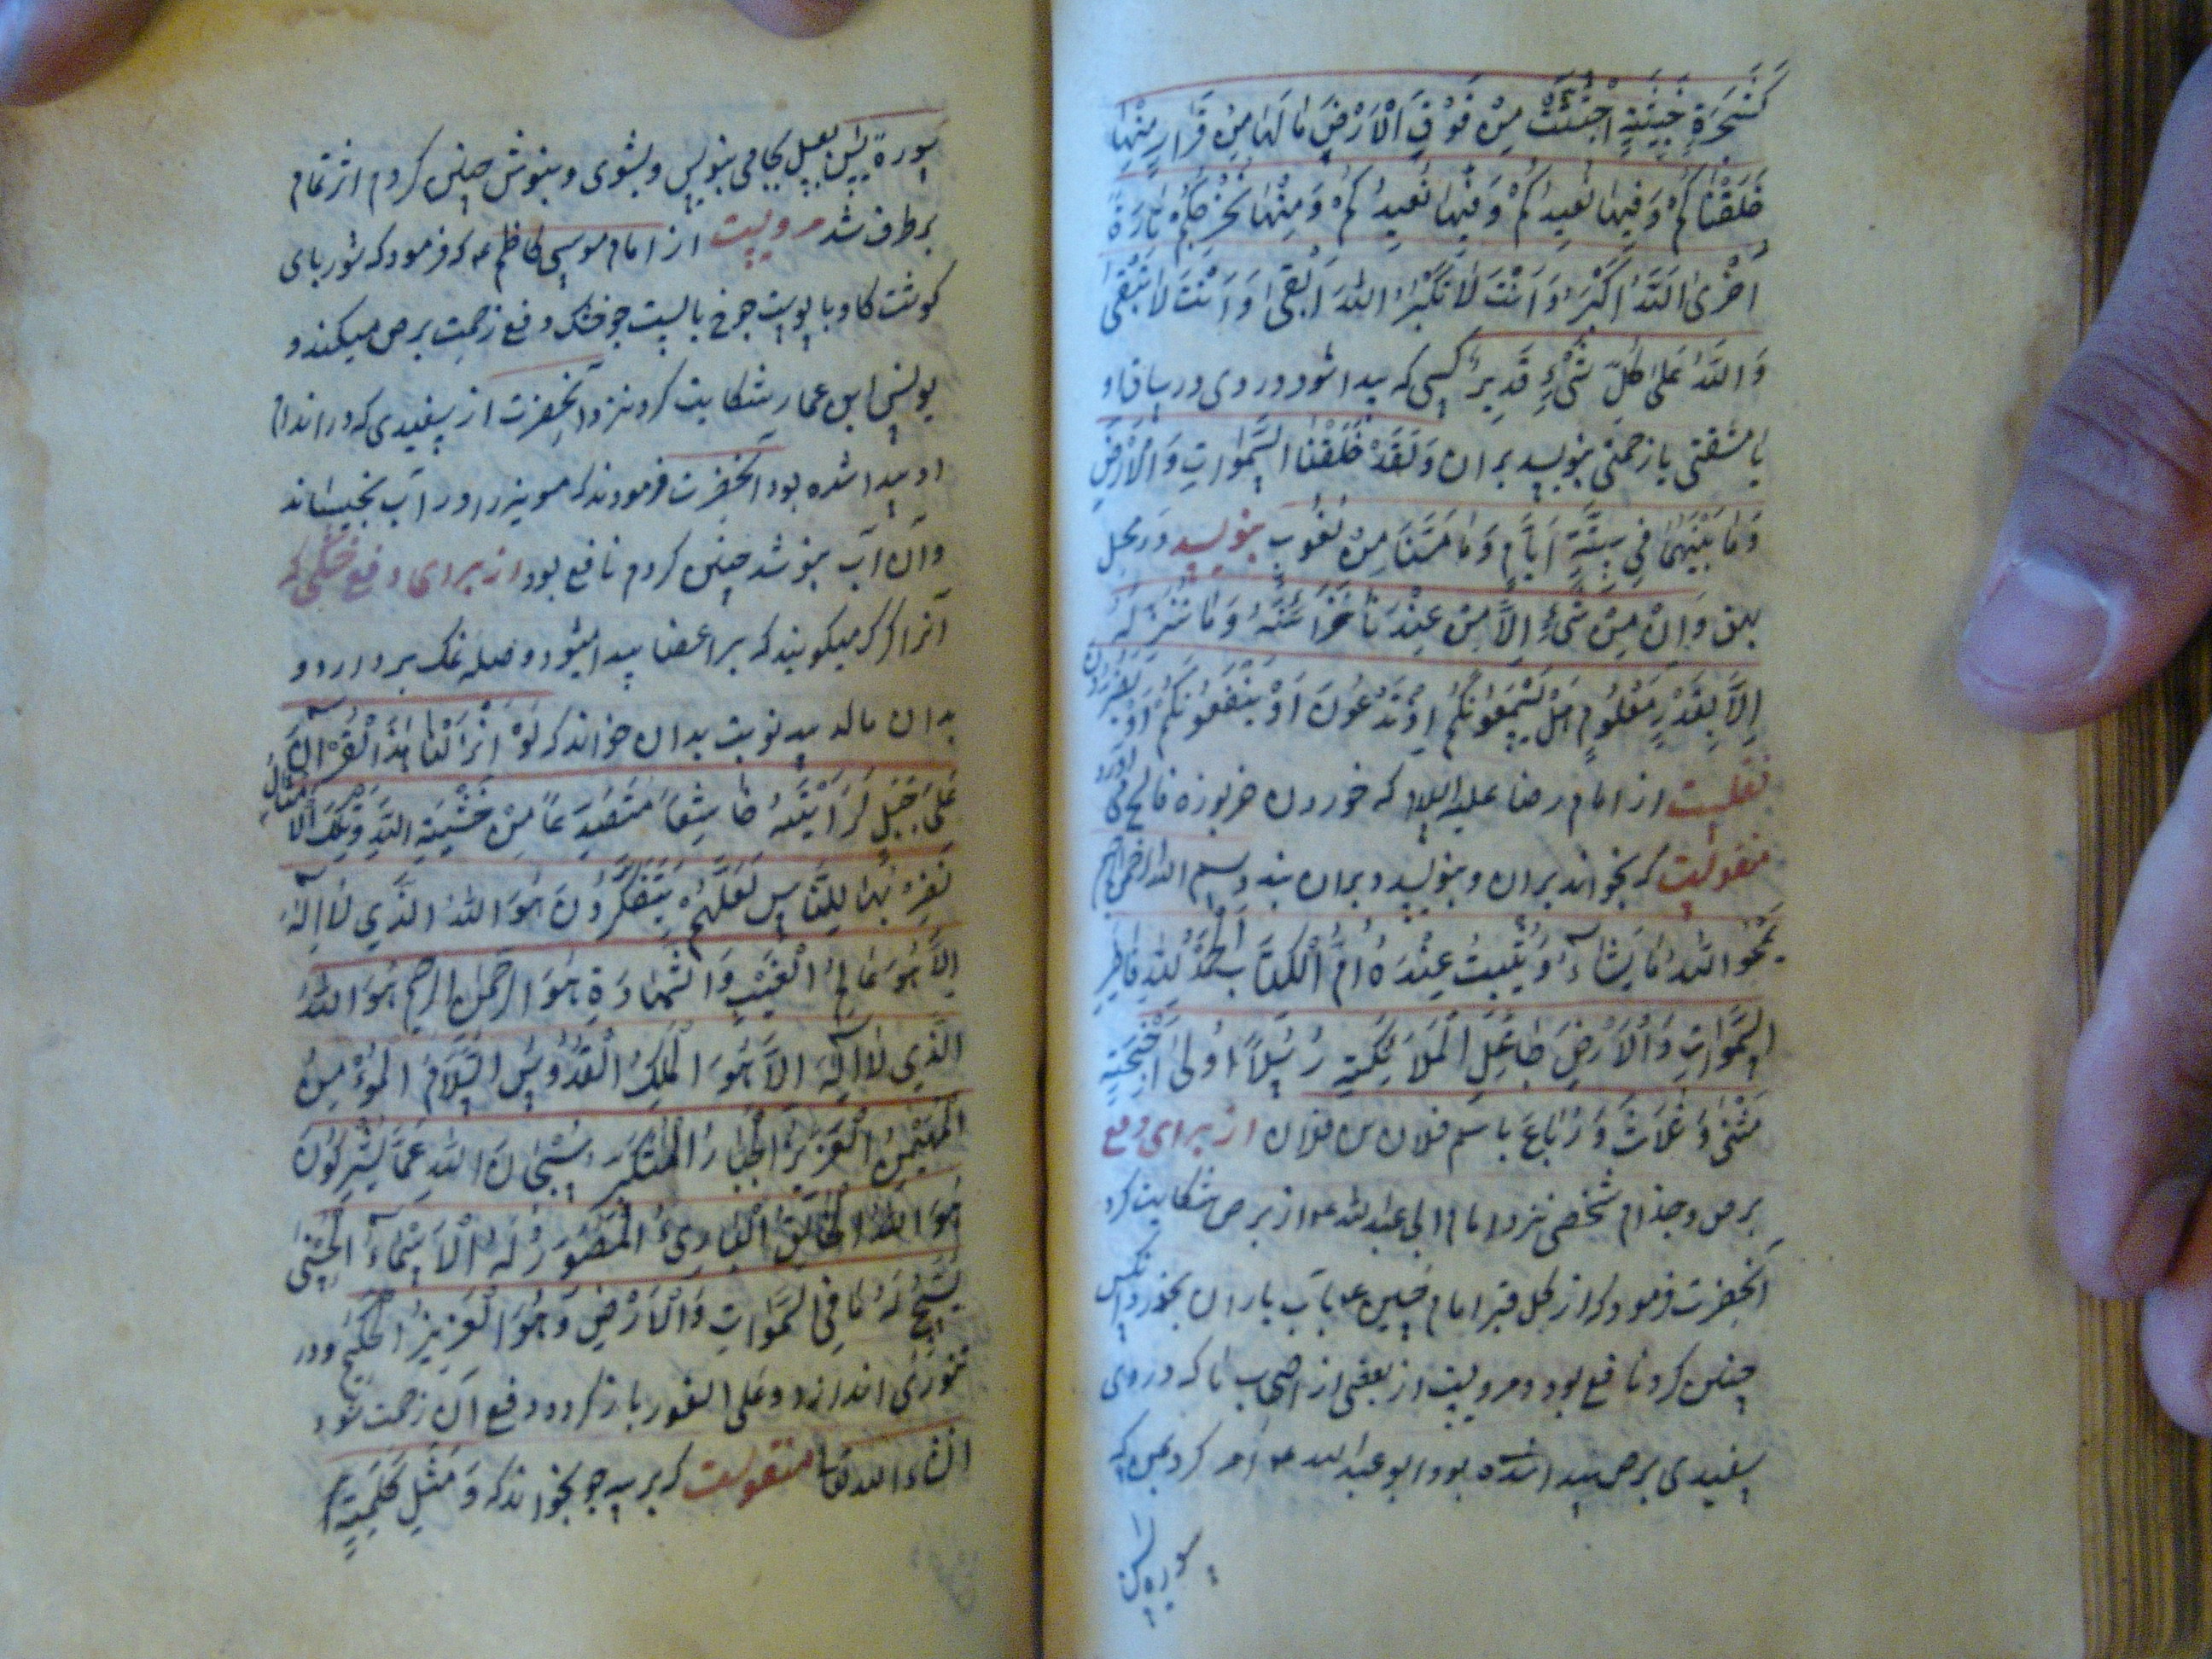 كَشَجَرَةٍ خَبِيثَةٍ اجْتُثَّتْ مِنْ فَوْقِ الْأَرْضِ مَا لَهَا مِنْ قَرَارٍ مِنْهَا
خَلَقْنَاكُمْ وَفِيهَا نُعِيدُكُمْ وَفِيهَا نُعِيدُكُمْ وَمِنْهَا نُخْرِجُكُمْ تَارَةً
أُخْرَىٰ اللَّهُ أَكْبَرُ وَأَنْتَ لَا تَكْبُرُ اللَّهُ أَبْقَىٰ وَأَنْتَ لَا تَبْقَىٰ
وَاللَّهُ عَلَىٰ كُلِّ شَيْءٍ قَدِيرٌ کسی که پیدا شود در روی در ساق او
یا مشقتی یا زحمتی بنویسد بران وَلَقَدْ خَلَقْنَا السَّمٰوَاتِ وَالْأَرْضَ
وَمَا بَيْنَهُمَا فِي سِتَّةِ أَيَّامٍ وَمَا مَسَّنَا مِنْ لُغُوبٍ بنویسد در محل
بهق وَإِنْ مِنْ شَيْءٍ إِلَّا مِنْ عِنْدَنَا خَزَائِنُهُ وَمَا نُنَزِّلُهُ
إِلَّا بِقَدَرٍ مَعْلُومٍ هَلْ يَسْمَعُونَكُمْ إِذْ تَدْعُونَ أَوْ يَنْفَعُونَكُمْ أَوْ يَضُرُّونَ
نقلست از امام رضا علیه السلام که خوردن خربوزه فالج آورد
منقولست که بخواند بران و بنویسد و بران بندد بسم الله الرحمن الرحیم
يَمْحُو اللَّهُ مَا يَشَاءُ وَيُثْبِتُ عِنْدَهُ أُمُّ الْكِتَابِ الْحَمْدُ لِلَّهِ فَاطِرِ
السَّمٰوَاتِ وَالْأَرْضِ جَاعِلِ الْمَلَائِكَةِ رُسُلًا أُولِي أَجْنِحَةٍ
مَثْنَىٰ وَثُلَاثَ وَرُبَاعَ باسم فلان بن فلان از برای دفع
برص و جذام شخصی نزد امام ابی عبدالله ع از برص شکایت کرد
آنحضرت فرمود که از گل قبر امام حسین ع باب باران بخور
چنین کرد نافع بود و مرویست از بعضی از اصحاب ما که در روی
سفیدی برص پیدا شده بود ابو عبدالله ع امر کرد بمن که
سوره یس
سورة یس بعسل بجامی بنویس و بشوی و بنوش چنین کردم اثر تمام
برطرف شد مرویست از امام موسی کاظم ع که فرمود که شوربای
گوشت گاو با پوست جو خشک دفع زحمت برص میکند و
یونس ابن عمار شکایت کرد نزد آنحضرت از سفیدی که در اندام
او پیدا شده بود آنحضرت فرمودند که مویز را در آب بخیساند
و آن آب بنوشد چنین کردم نافع بود از برای دفع خشکی که
آنرا کرک میگویند که بر اعضا پیدا میشود وصله نمک بردارد و
بدان مالد سه نوبت بدان خواند که لَوْ أَنْزَلْنَا هٰذَا الْقُرْآنَ
عَلَىٰ جَبَلٍ لَرَأَيْتَهُ خَاشِعًا مُتَصَدِّعًا مِنْ خَشْيَةِ اللَّهِ وَتِلْكَ الْأَمْثَالُ
نَضْرِبُهَا لِلنَّاسِ لَعَلَّهُمْ يَتَفَكَّرُونَ هُوَ اللَّهُ الَّذِي لَا إِلٰهَ
إِلَّا هُوَ عَالِمُ الْغَيْبِ وَالشَّهَادَةِ هُوَ الرَّحْمٰنُ الرَّحِيمُ هُوَ اللَّهُ
الَّذِي لَا إِلٰهَ إِلَّا هُوَ الْمَلِكُ الْقُدُّوسُ السَّلَامُ الْمُؤْمِنُ
الْمُهَيْمِنُ الْعَزِيزُ الْجَبَّارُ الْمُتَكَبِّرُ سُبْحَانَ اللَّهِ عَمَّا يُشْرِكُونَ
هُوَ اللَّهُ الْخَالِقُ الْبَارِئُ الْمُصَوِّرُ لَهُ الْأَسْمَاءُ الْحُسْنَىٰ
يُسَبِّحُ لَهُ مَا فِي السَّمٰوَاتِ وَالْأَرْضِ وَهُوَ الْعَزِيزُ الْحَكِيمُ و در
تنوری اندازد و علی الفور باز گردد دفع آن زحمت شود
انشاء الله تعا منقولست که بر سه جو بخواند که وَمَثَلُ كَلِمَةٍ